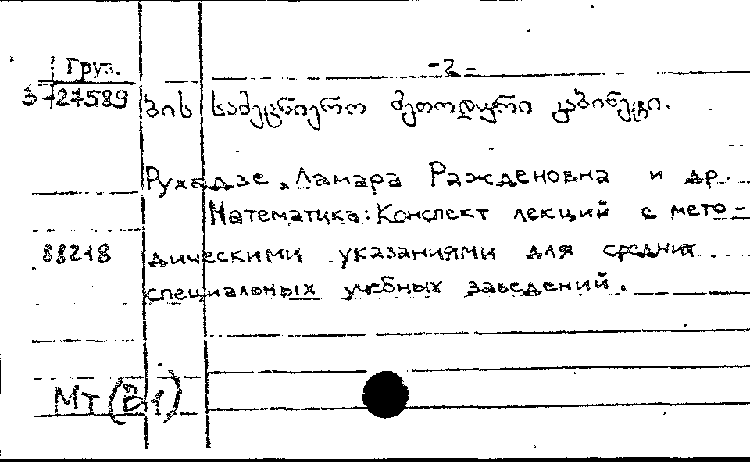 Груз. -2-
3-27589 ბის სამეცნიერო მეთოდური კაბინეტი.
Рухадзе, Ламара Ражденовна и др.
Математика: Конспект лекций с мето-
88218 дическими указаниями для средних
специальных учебных заведений.
Мт (В1)